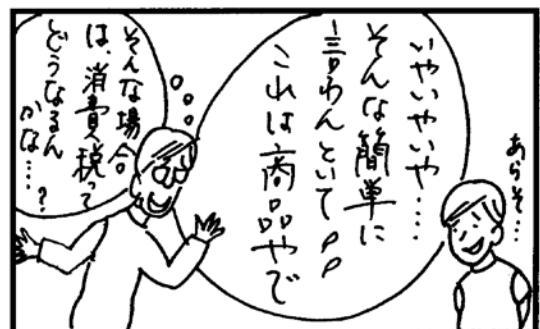 あらそ…
いやいやいや…
そんな簡単に
言わんといて
これは商品やで
そんな場合
は、消費税って
どうなるん
かな…？